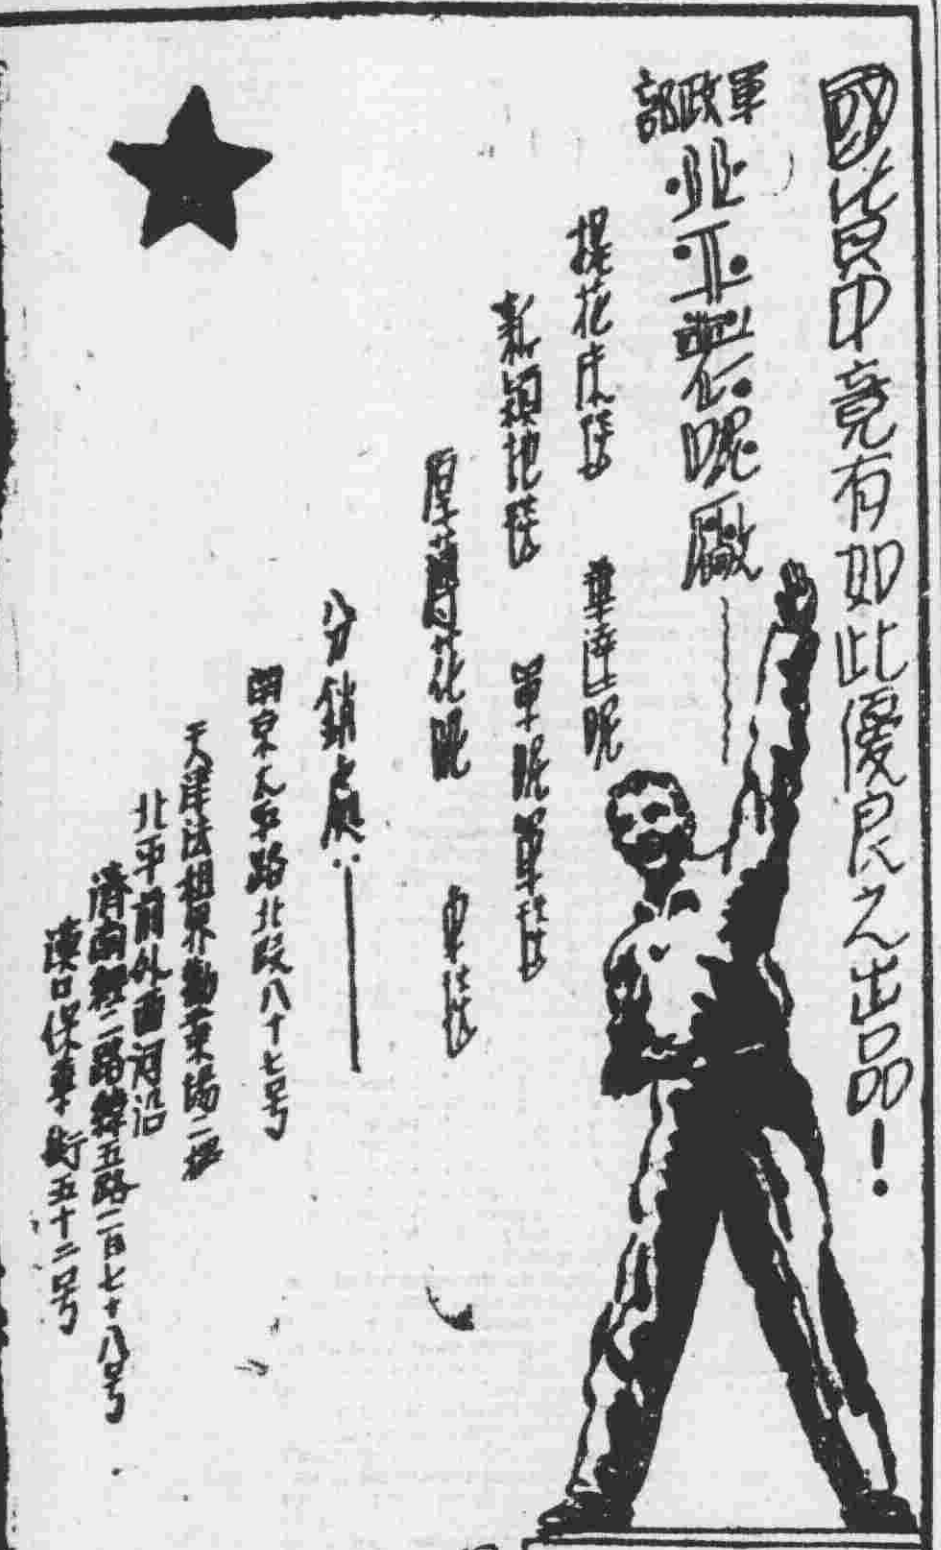 國貨中竟有如此優良之出品！
軍政部
北平製呢廠
提花床毯　華達呢
新穎地毯　軍呢軍毯
厚薄花呢　車毯
分銷處：
南京太平路北段八十七号
天津法租界勸業場二樓
北平前外西河沿
濟南經二路緯五路二百七十八号
漢口保華街五十二号